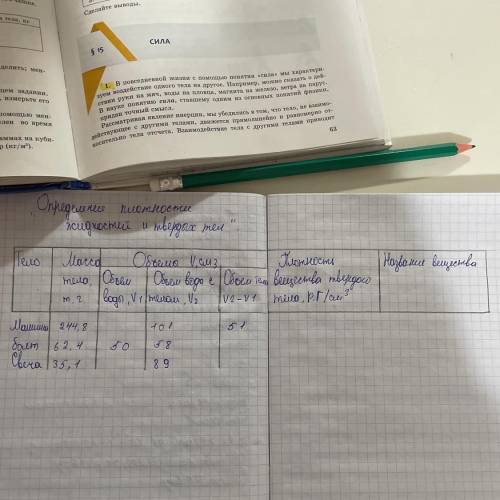 Сделайте выводы.
§ 15
СИЛА
1. В повседневной жизни с помощью понятия «сила» мы характери-
зуем воздействие одного тела на другое. Например, можно сказать о дей-
ствии руки на мяч, воды на пловца, магнита на железо, ветра на парус.
В науке понятию силы, ставшему одним из основных понятий физики,
придан точный смысл.
Рассматривая явление инерции, мы убедились в том, что тело, не взаимо-
действующее с другими телами, движется прямолинейно и равномерно от-
носительно тела отсчета. Взаимодействие тела с другими телами приводит
63
"Определение плотности
жидкостей и твердых тел"
Тело
Масса
тела,
m, г.
Объемы V, см3
Объем
воды, V1
Объем воды с
телом, V2
Объем тела
V2-V1
Плотность
вещества твердого
тела, p, г/см³
Название вещества
Машина 244,8 101 51
болт 62,4 50 58
Свеча 35,1 89